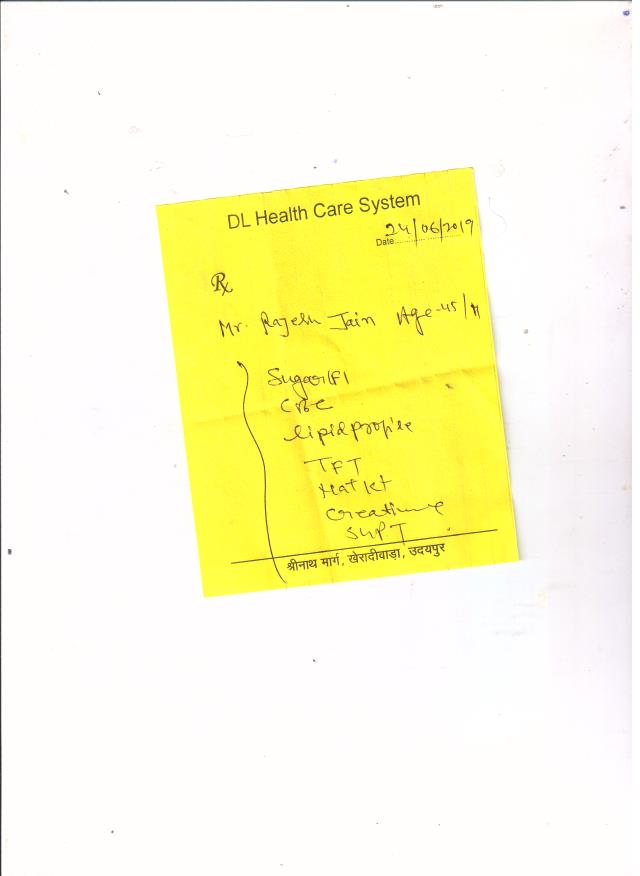 DL Health Care System
Date 24/06/2019
Rx
Mr. Rajesh Jain Age-45/M
Sugar(F)
CBC
lipid profile
TFT
Creatinine
SGPT
श्रीनाथ मार्ग, खेरादीवाड़ा, उदयपुर